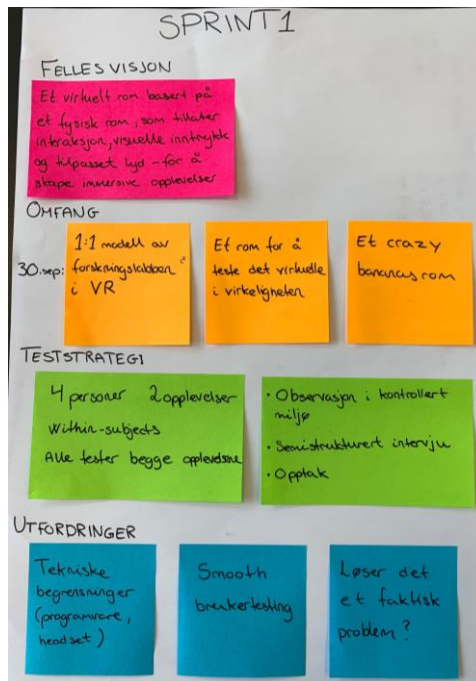 SPRINT 1
FELLES VISJON
Et virtuelt rom basert på
et fysisk rom, som tillater
interaksjon, visuelle inntrykk
og tilpasset lyd - for å
skape immersive opplevelser
OMFANG
30.sep:
1:1 modell av
forskningslabben
i VR
Et rom for å
teste det virtuelle
i virkeligheten
Et crazy
bananas rom
TESTSTRATEGI
4 personer 2 opplevelser
Within-subjects
Alle tester begge opplevelsene
• Observasjon i kontrollert
miljø
• Semistrukturert intervju
• Opptak
UTFORDRINGER
Tekniske
begrensninger
(programvare,
headset)
Smooth
brukertesting
Løser det
et faktisk
problem?